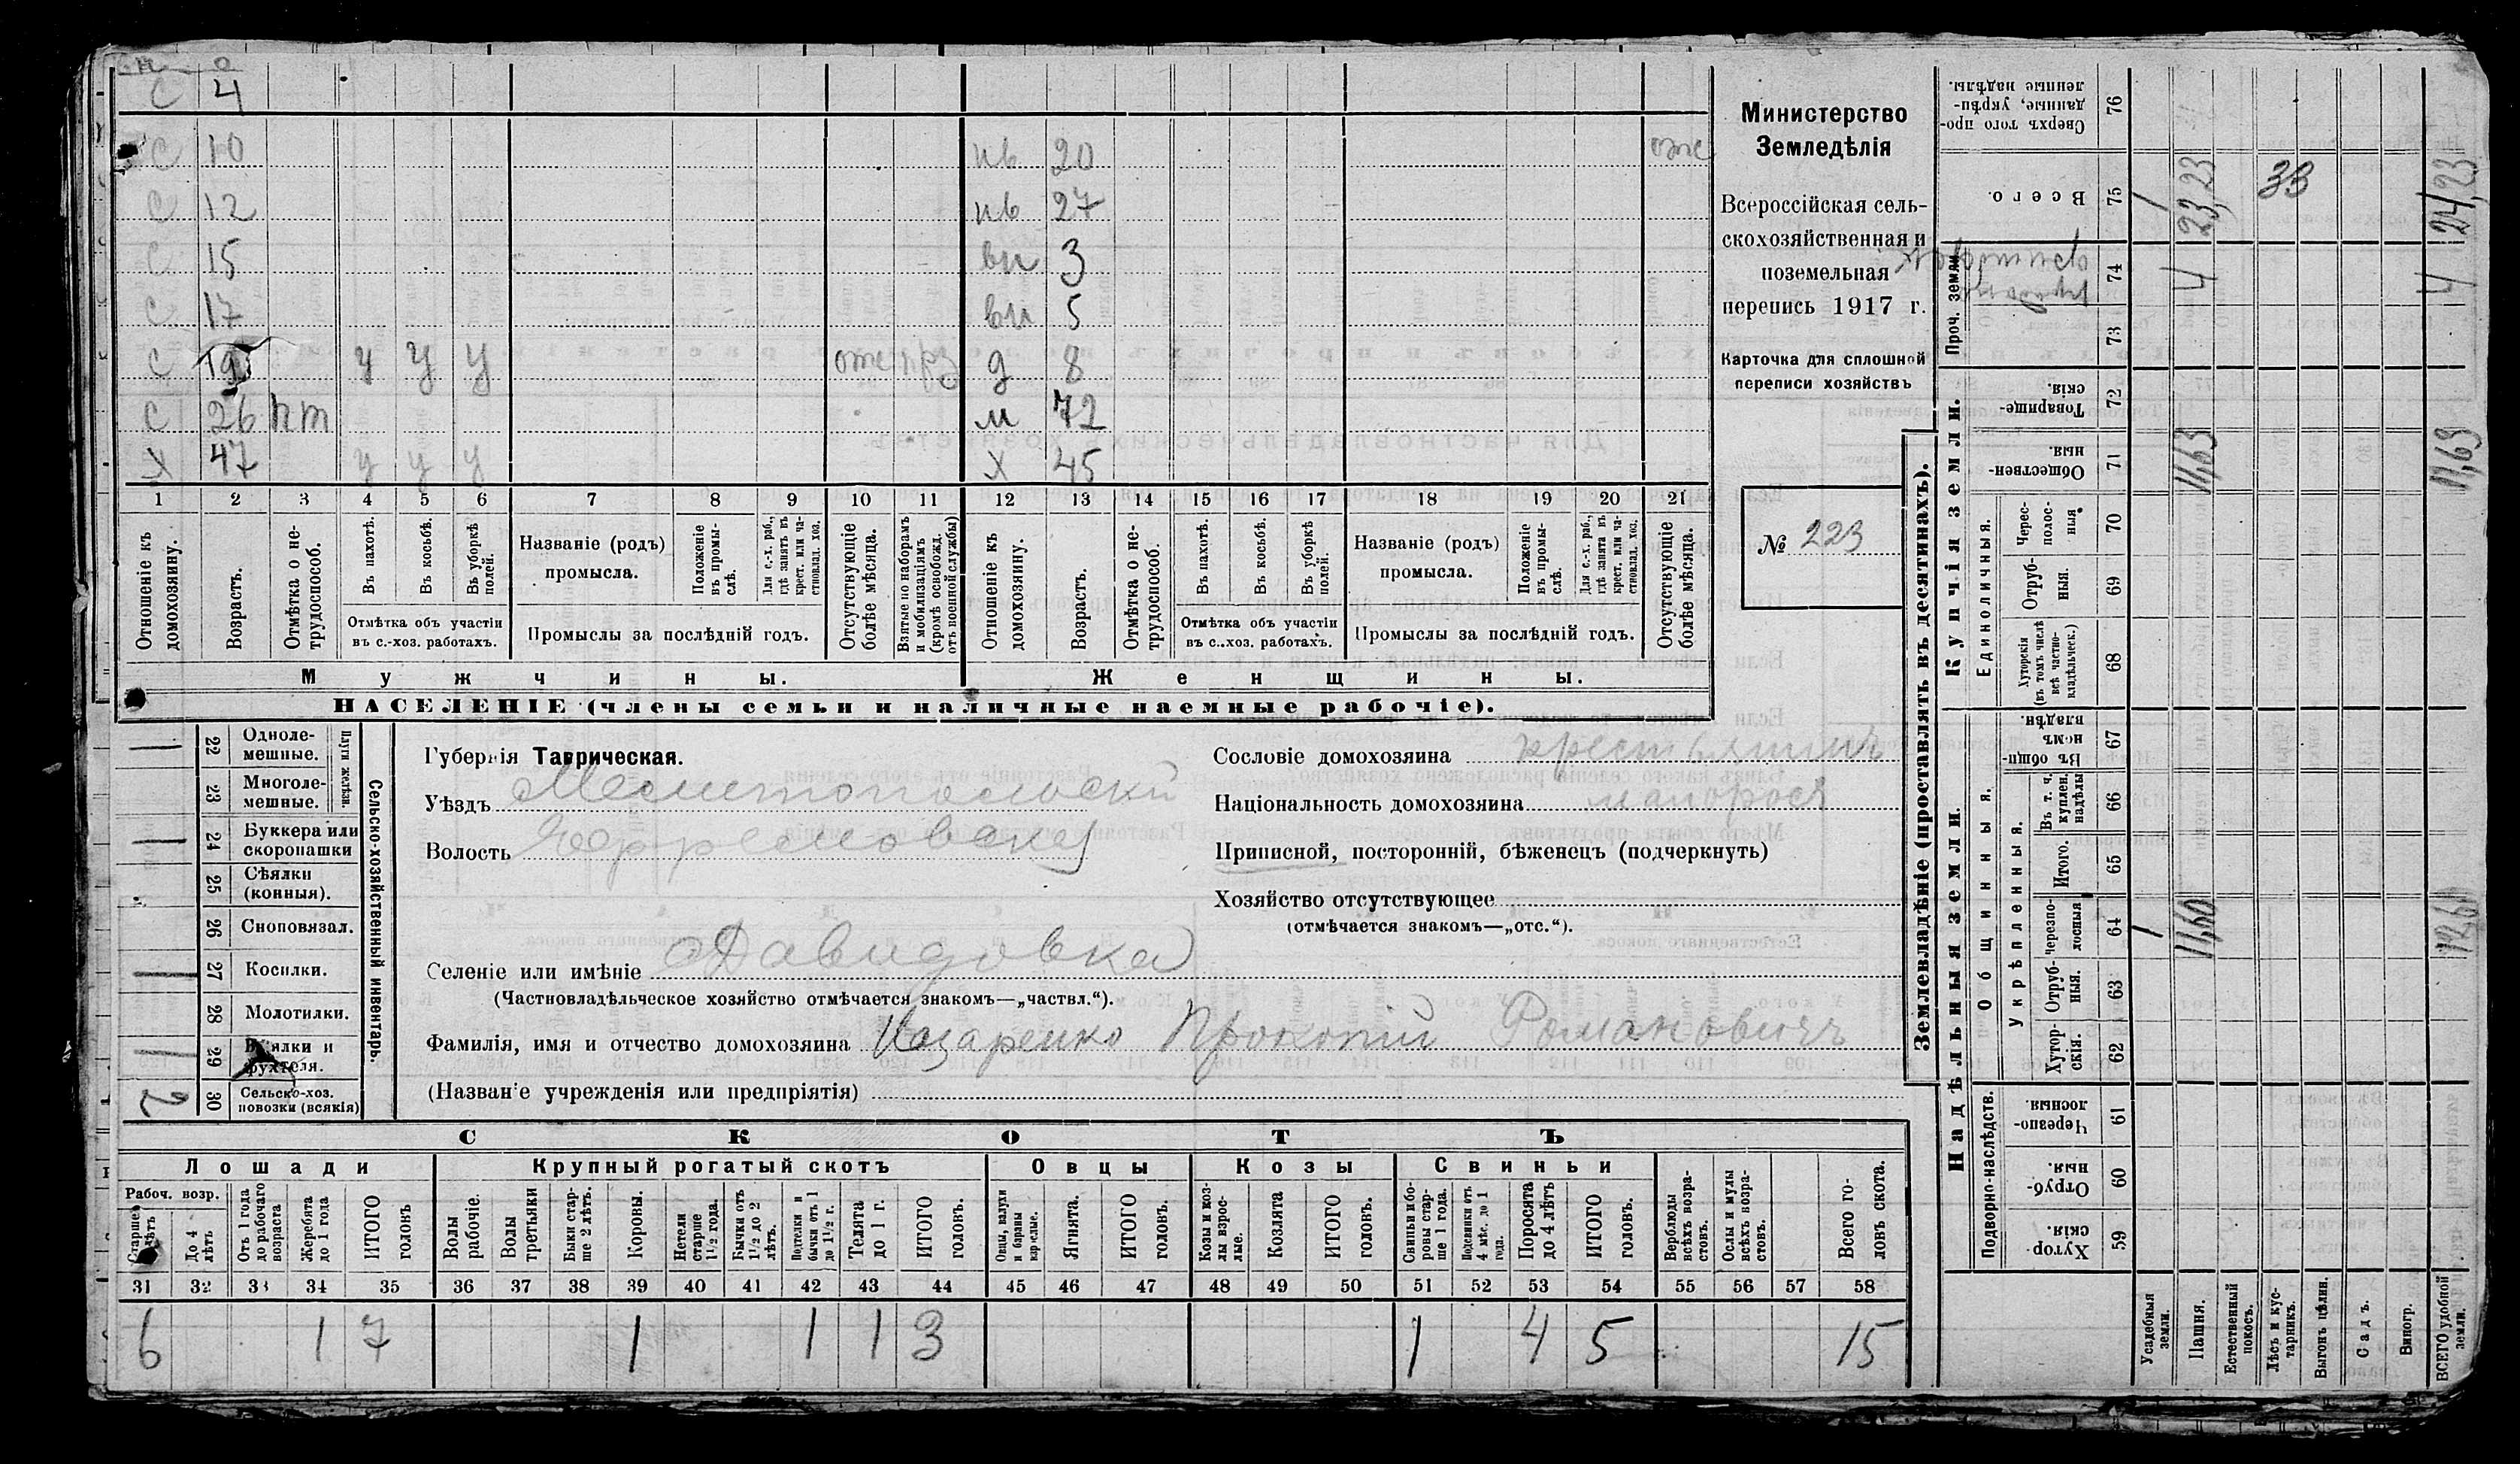 С 4
С 10 нв 20 отс
С 12 нв 27
С 15 вн 3
С 17 вн 5
С 19 у у у отс прз д 8
С 26 нт м 72
Х 47 у у у Х 45
1 2 3 4 5 6 7 8 9 10 11 12 13 14 15 16 17 18 19 20 21
Отношеніе къ домохозяину.
Возрастъ.
Отмѣтка о нетрудоспособ.
Въ пахотѣ.
Въ косьбѣ.
Въ уборкѣ полей.
Отмѣтка объ участіи
въ с.-хоз. работахъ.
Названіе (родъ)
промысла.
Положеніе въ промыслѣ.
Для с.-х. раб., гдѣ занятъ въ крест. или частновлад. хоз.
Промыслы за послѣдній годъ.
Отсутствующіе болѣе мѣсяца.
Взятые по наборамъ и мобилизаціямъ (кромѣ освобожд. отъ военной службы)
Отношеніе къ домохозяину.
Возрастъ.
Отмѣтка о нетрудоспособ.
Въ пахотѣ.
Въ косьбѣ.
Въ уборкѣ полей.
Отмѣтка объ участіи
въ с.-хоз. работахъ.
Названіе (родъ)
промысла.
Положеніе въ промыслѣ.
Для с.-х. раб., гдѣ занята въ крест. или частновлад. хоз.
Промыслы за послѣдній годъ.
Отсутствующіе болѣе мѣсяца.
Мужчины. Женщины.
НАСЕЛЕНІЕ (члены семьи и наличные наемные рабочіе).
Министерство
Земледѣлія
Всероссійская сель-
скохозяйственная и
поземельная
перепись 1917 г.
Карточка для сплошной
переписи хозяйствъ
№ 223
Сельско-хозяйственный инвентарь.
Плуги желѣзн
22 Однолемешные.
23 Многолемешные.
24 Буккера или скоропашки
25 Сѣялки (конныя).
26 Сноповязал.
27 Косилки.
28 Молотилки.
29 Вѣялки и фухтеля.
30 Сельско-хоз. повозки (всякія) 2
Губернія Таврическая.
Уѣздъ Мелитопольскій
Волость Ефремовская
Селеніе или имѣніе Давидовка
(Частновладѣльческое хозяйство отмѣчается знакомъ—„частвл.“).
Фамилія, имя и отчество домохозяина Назаренко Прокопій Романовичъ
(Названіе учрежденія или предпріятія)
Сословіе домохозяина крестьянинъ
Національность домохозяина малоросъ
Приписной, посторонній, бѣженецъ (подчеркнуть)
Хозяйство отсутствующее
(отмѣчается знакомъ—„отс.“).
СКОТЪ
Лошади Крупный рогатый скотъ Овцы Козы Свиньи
Рабоч. возр.
Старше 4 лѣтъ
До 4 лѣтъ
Отъ 1 года до рабочаго возраста
Жеребята до 1 года
ИТОГО головъ
Волы рабочіе.
Волы третьяки
Быки старше 2 лѣтъ.
Коровы.
Нетели старше 1½ года.
Бычки отъ 1½ до 2 лѣтъ.
Подтелки и бычки отъ 1 до 1½ г.
Телята до 1 г.
ИТОГО головъ.
Овцы, валухи и бараны взрослые.
Ягнята.
ИТОГО головъ.
Козы и козлы взрослые.
Козлята
ИТОГО головъ.
Свиньи боровы старше 1 года.
Подсвинки отъ 4 мѣс. до 1 года.
Поросята до 4 лѣтъ
ИТОГО головъ.
Верблюды всѣхъ возрастовъ.
Ослы и мулы всѣхъ возрастовъ.
Всего головъ скота.
31 32 33 34 35 36 37 38 39 40 41 42 43 44 45 46 47 48 49 50 51 52 53 54 55 56 57 58
6 1 7 1 1 1 3 1 4 5 15
Землевладѣніе (проставлять въ десятинахъ).
Купчія земли.
Надѣльныя земли.
Проч. земли
Сверхъ того проданные, укрѣпленные надѣлы. 76
Всего. 75 1 23,23 33 24/23
74 4 4
73
Товарищескія. 72
Общественныя. 71 11,63 11,63
Единоличныя.
Чересполосныя 70
Отрубныя. 69
Хуторскія (въ томъ числѣ всѣ частновладѣльческ.) 68
Общинныя.
Въ общинномъ владѣн. 67
Укрѣпленныя.
Въ т. ч. куплен. надѣлы 66
Итого. 65
Черезполосныя 64 1 11,60 12,60
Отрубныя. 63
Хуторскія. 62
Подворно-наслѣдств.
Черезполосныя. 61
Отрубныя. 60
Хуторскія. 59
Усадебныя земли.
Пашня.
Естественный покосъ.
Лѣсъ и кустарникъ.
Выгонъ цѣлин.
Садъ.
Виногр.
ВСЕГО удобной земли.